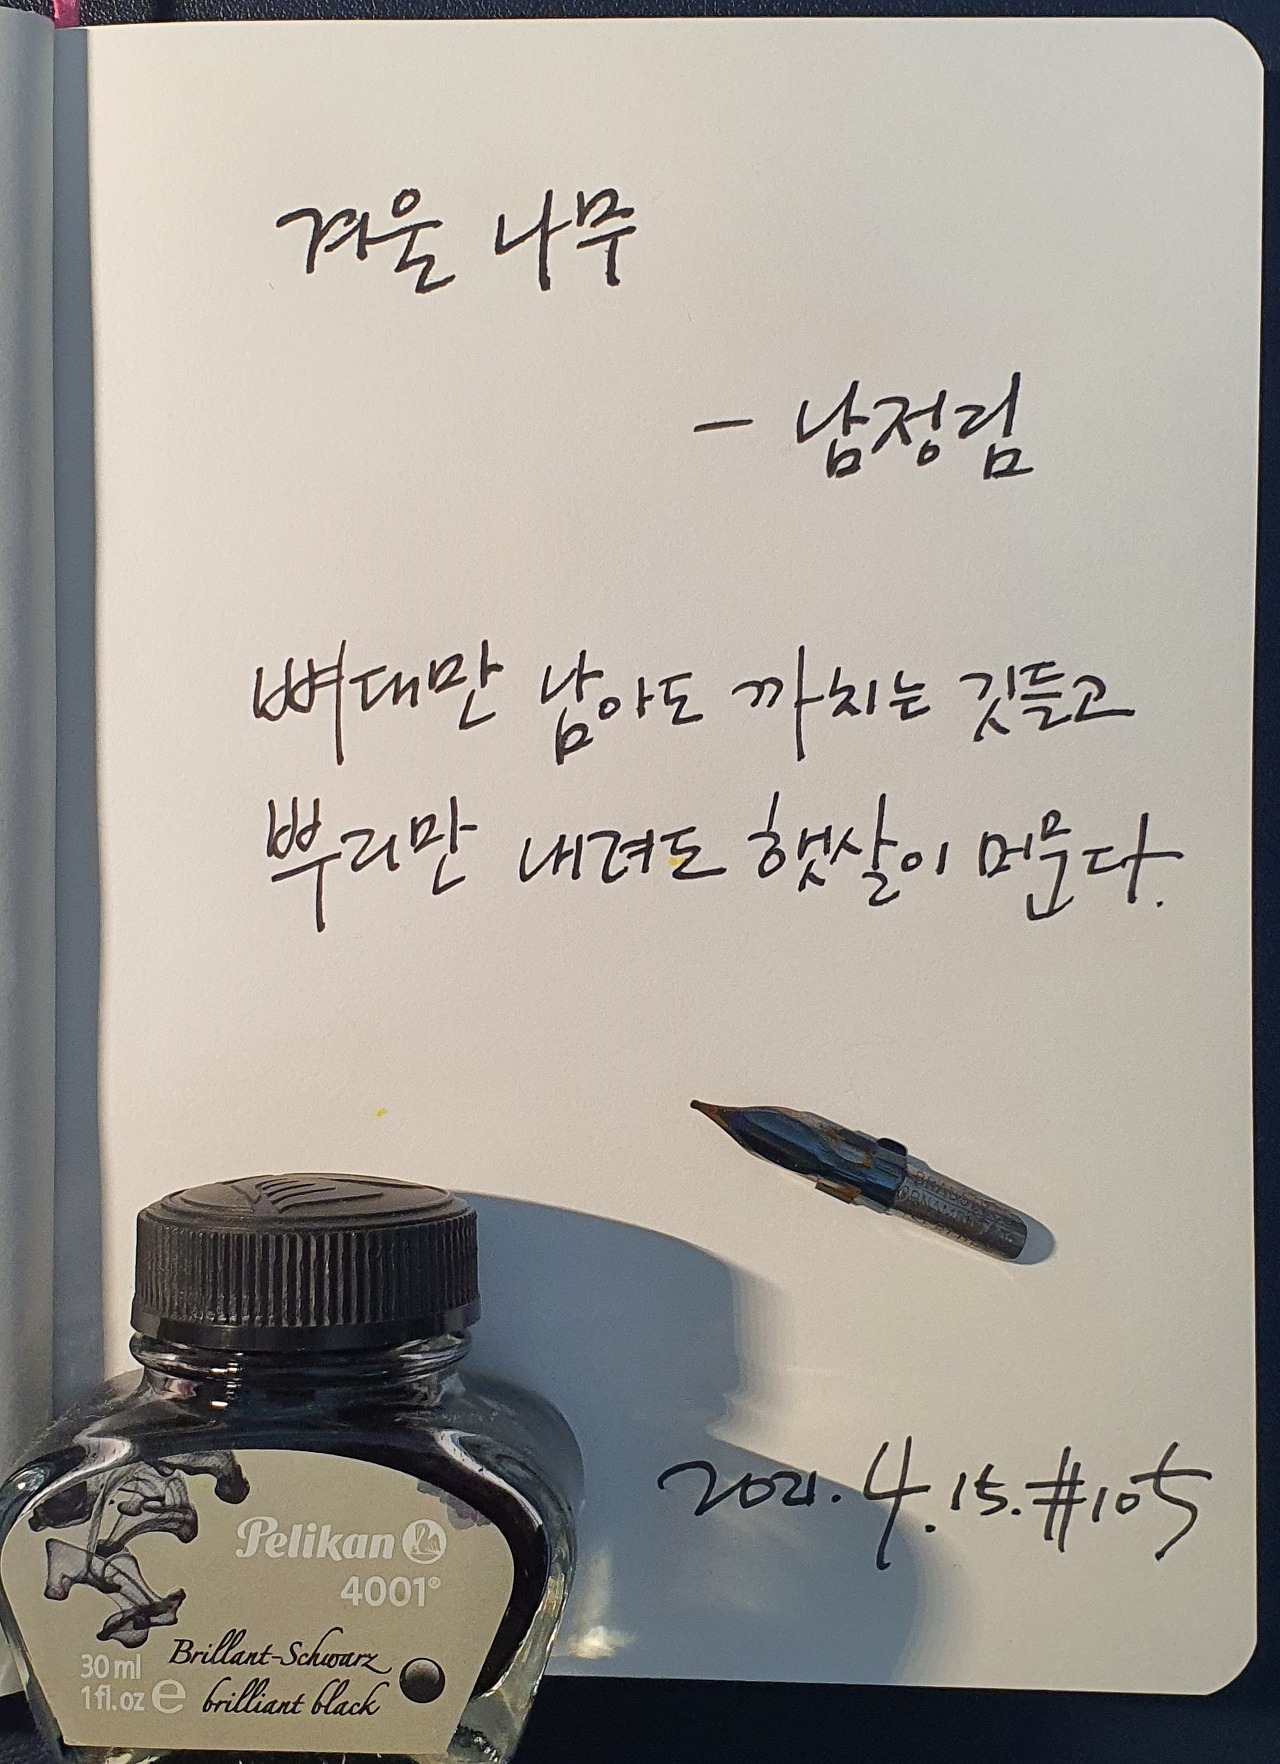 겨울 나무
- 남정림
뼈대만 남아도 까치는 깃들고
뿌리만 내려도 햇살이 머문다.
2021. 4. 15. #105
Pelikan
4001®
Brillant-Schwarz
brilliant black
30 ml
1 fl.oz e